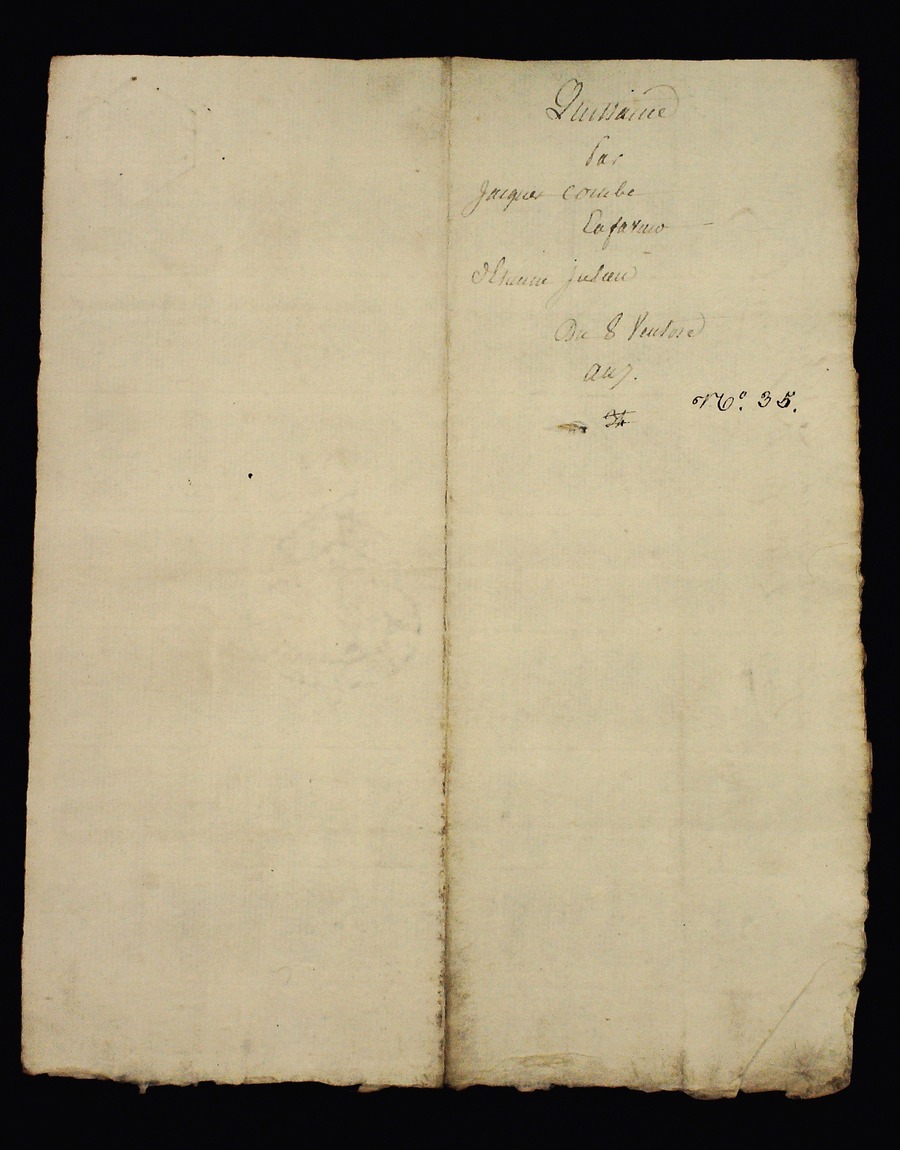 Quittance
par
Jacques Combe
En faveur
d'Etienne Julian
Du 8 Ventose
an 7.
34
N.º 35.